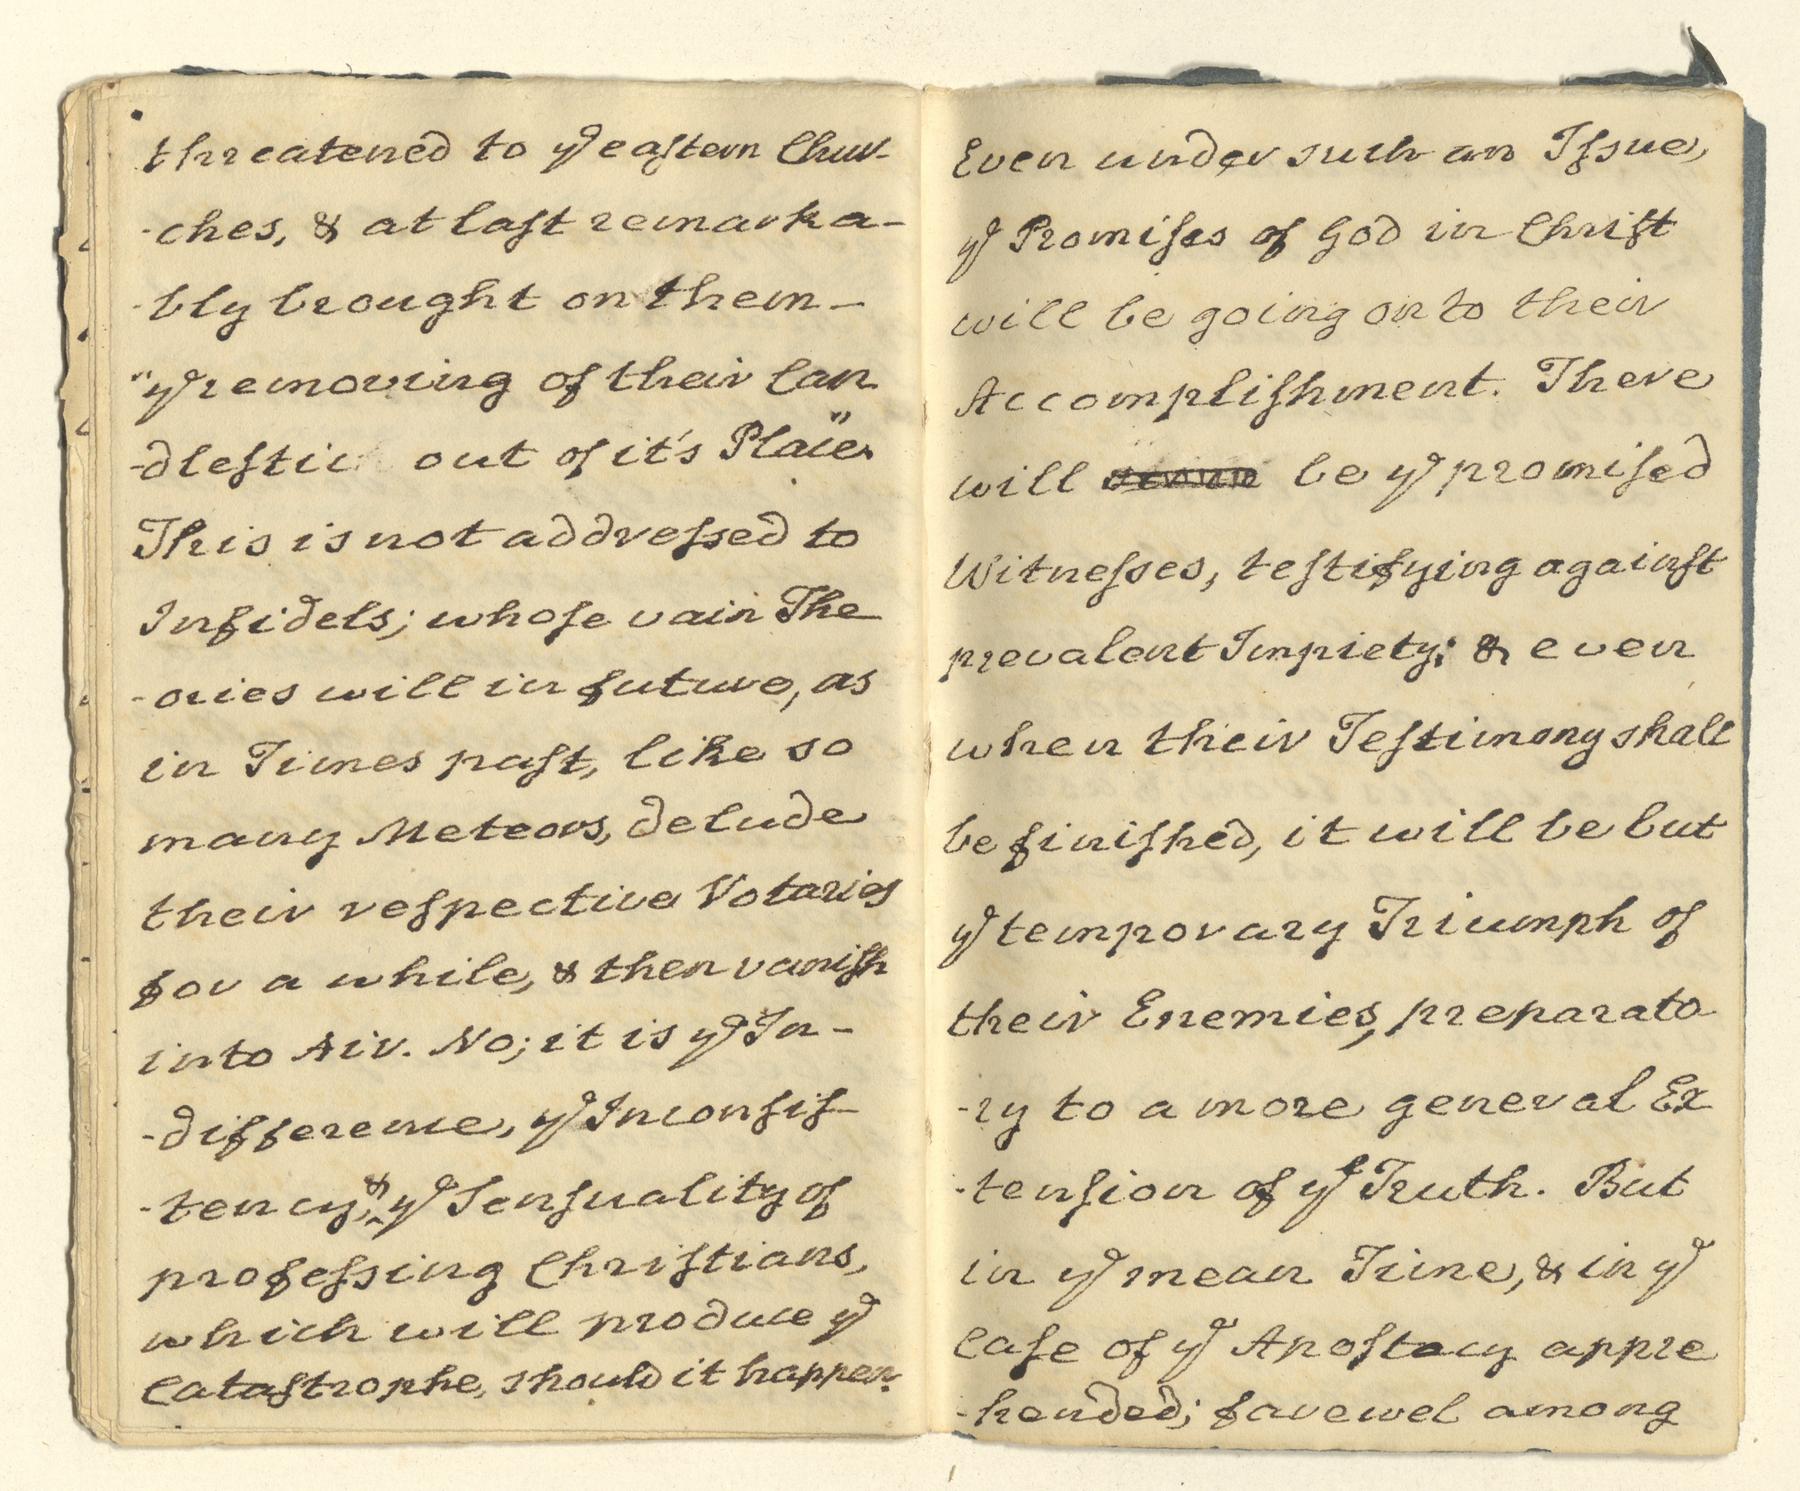 threatened to yᵉ eastern Chur-
-ches, & at last remarka-
-bly brought on them-
"yᵉ removing of their Can
-dlestic out of it's Place."
This is not addressed to
Infidels; whose vain The
-ories will in future, as
in Times past, like so
many Meteors, delude
their respective Votaries
for a while, & then vanish
into Air. No; it is yᵉ In-
-difference, yᵉ Inconsis-
-tency, & yᵉ Sensuality of
professing Christians,
which will produce yᵉ
Catastrophe, should it happen.
Even under such an Issue,
yᵉ Promises of God in Christ
will be going on to their
Accomplishment. There
will be yᵉ promised
Witnesses, testifying against
prevalent Impiety; & even
when their Testimony shall
be finished, it will be but
yᵉ temporary Triumph of
their Enemies, preparato
-ry to a more general Ex
-tension of yᵉ Truth. But
in yᵉ mean Time, & in yᵉ
Case of yᵉ Apostacy appre
-hended; farewel among